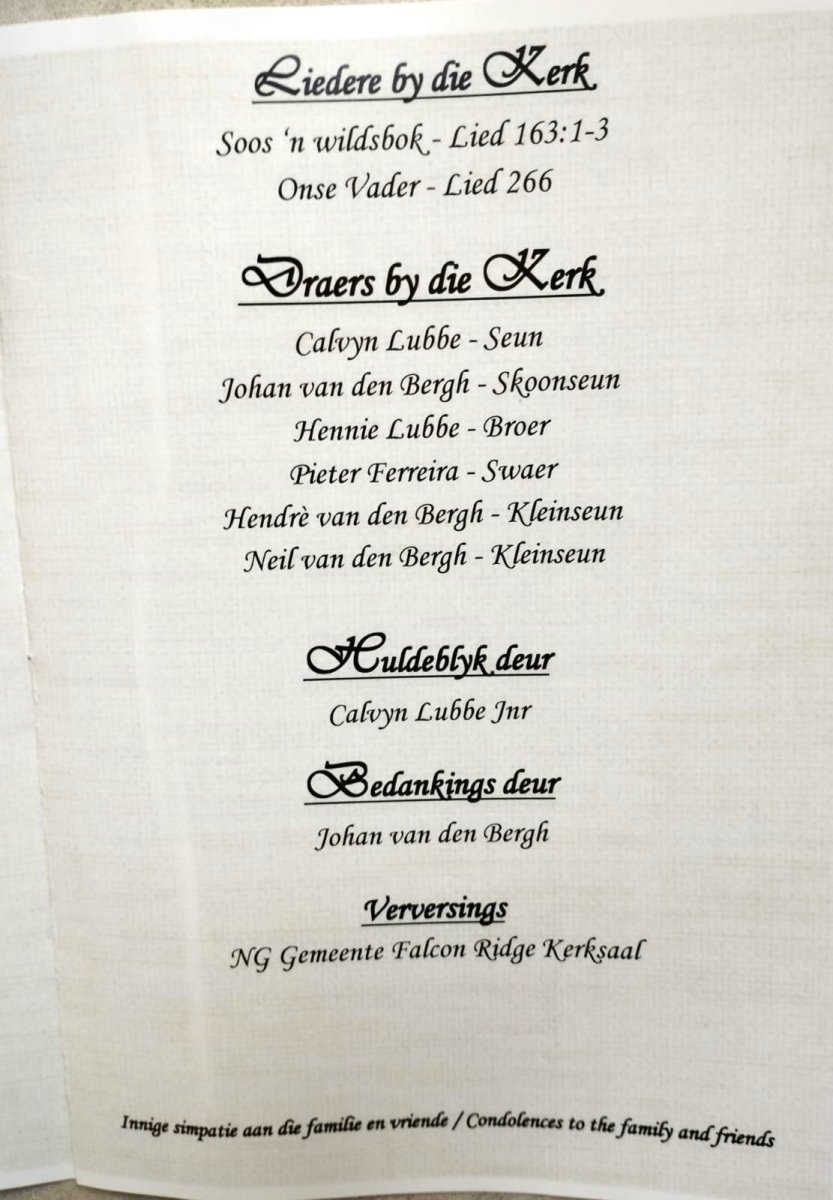 Liedere by die Kerk
Soos ‘n wildsbok - Lied 163:1-3
Onse Vader - Lied 266
Draers by die Kerk
Calvyn Lubbe - Seun
Johan van den Bergh - Skoonseun
Hennie Lubbe - Broer
Pieter Ferreira - Swaer
Hendrè van den Bergh - Kleinseun
Neil van den Bergh - Kleinseun
Huldeblyk deur
Calvyn Lubbe Jnr
Bedankings deur
Johan van den Bergh
Verversings
NG Gemeente Falcon Ridge Kerksaal
Innige simpatie aan die familie en vriende / Condolences to the family and friends